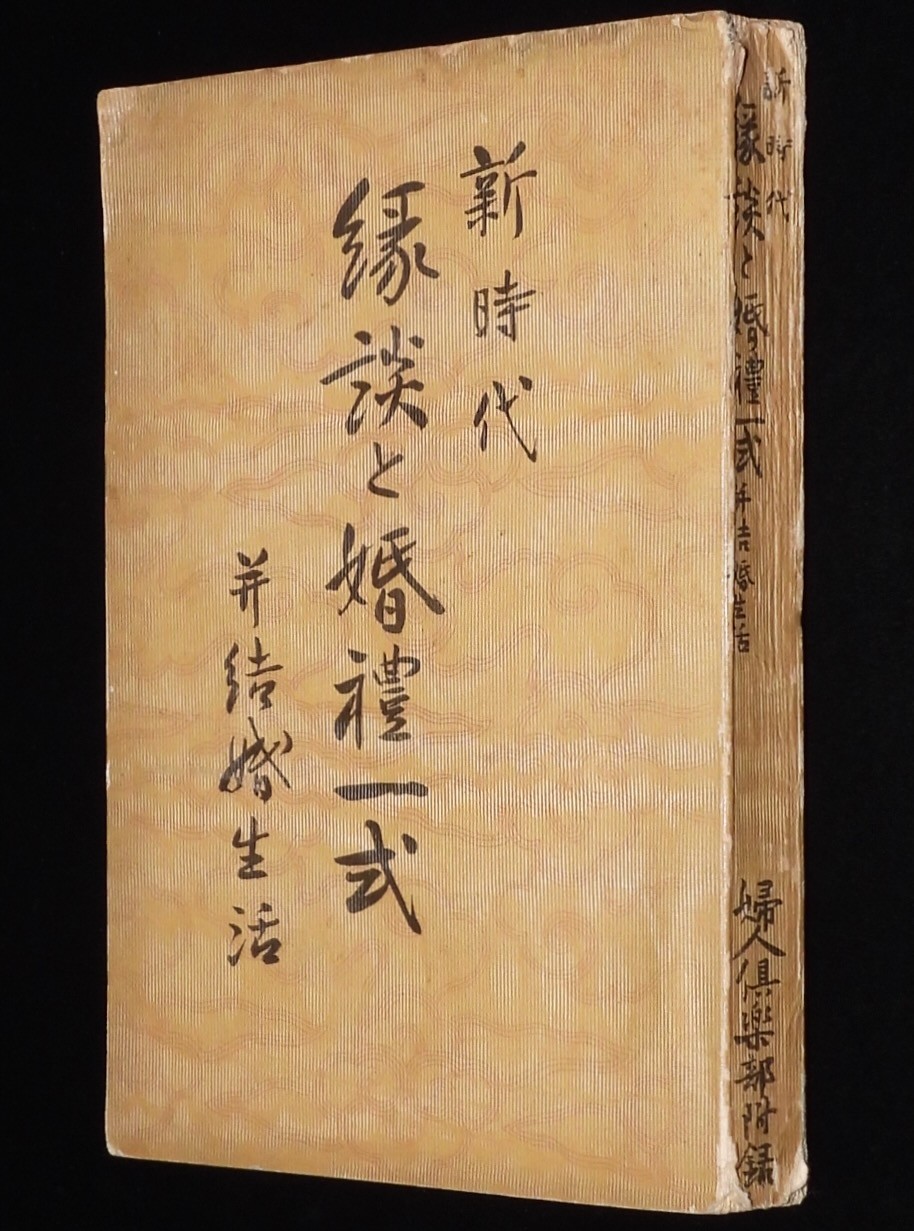 新時代
縁談と婚禮一式
并結婚生活
新時代
縁談と婚禮一式并結婚生活
婦人倶楽部附録